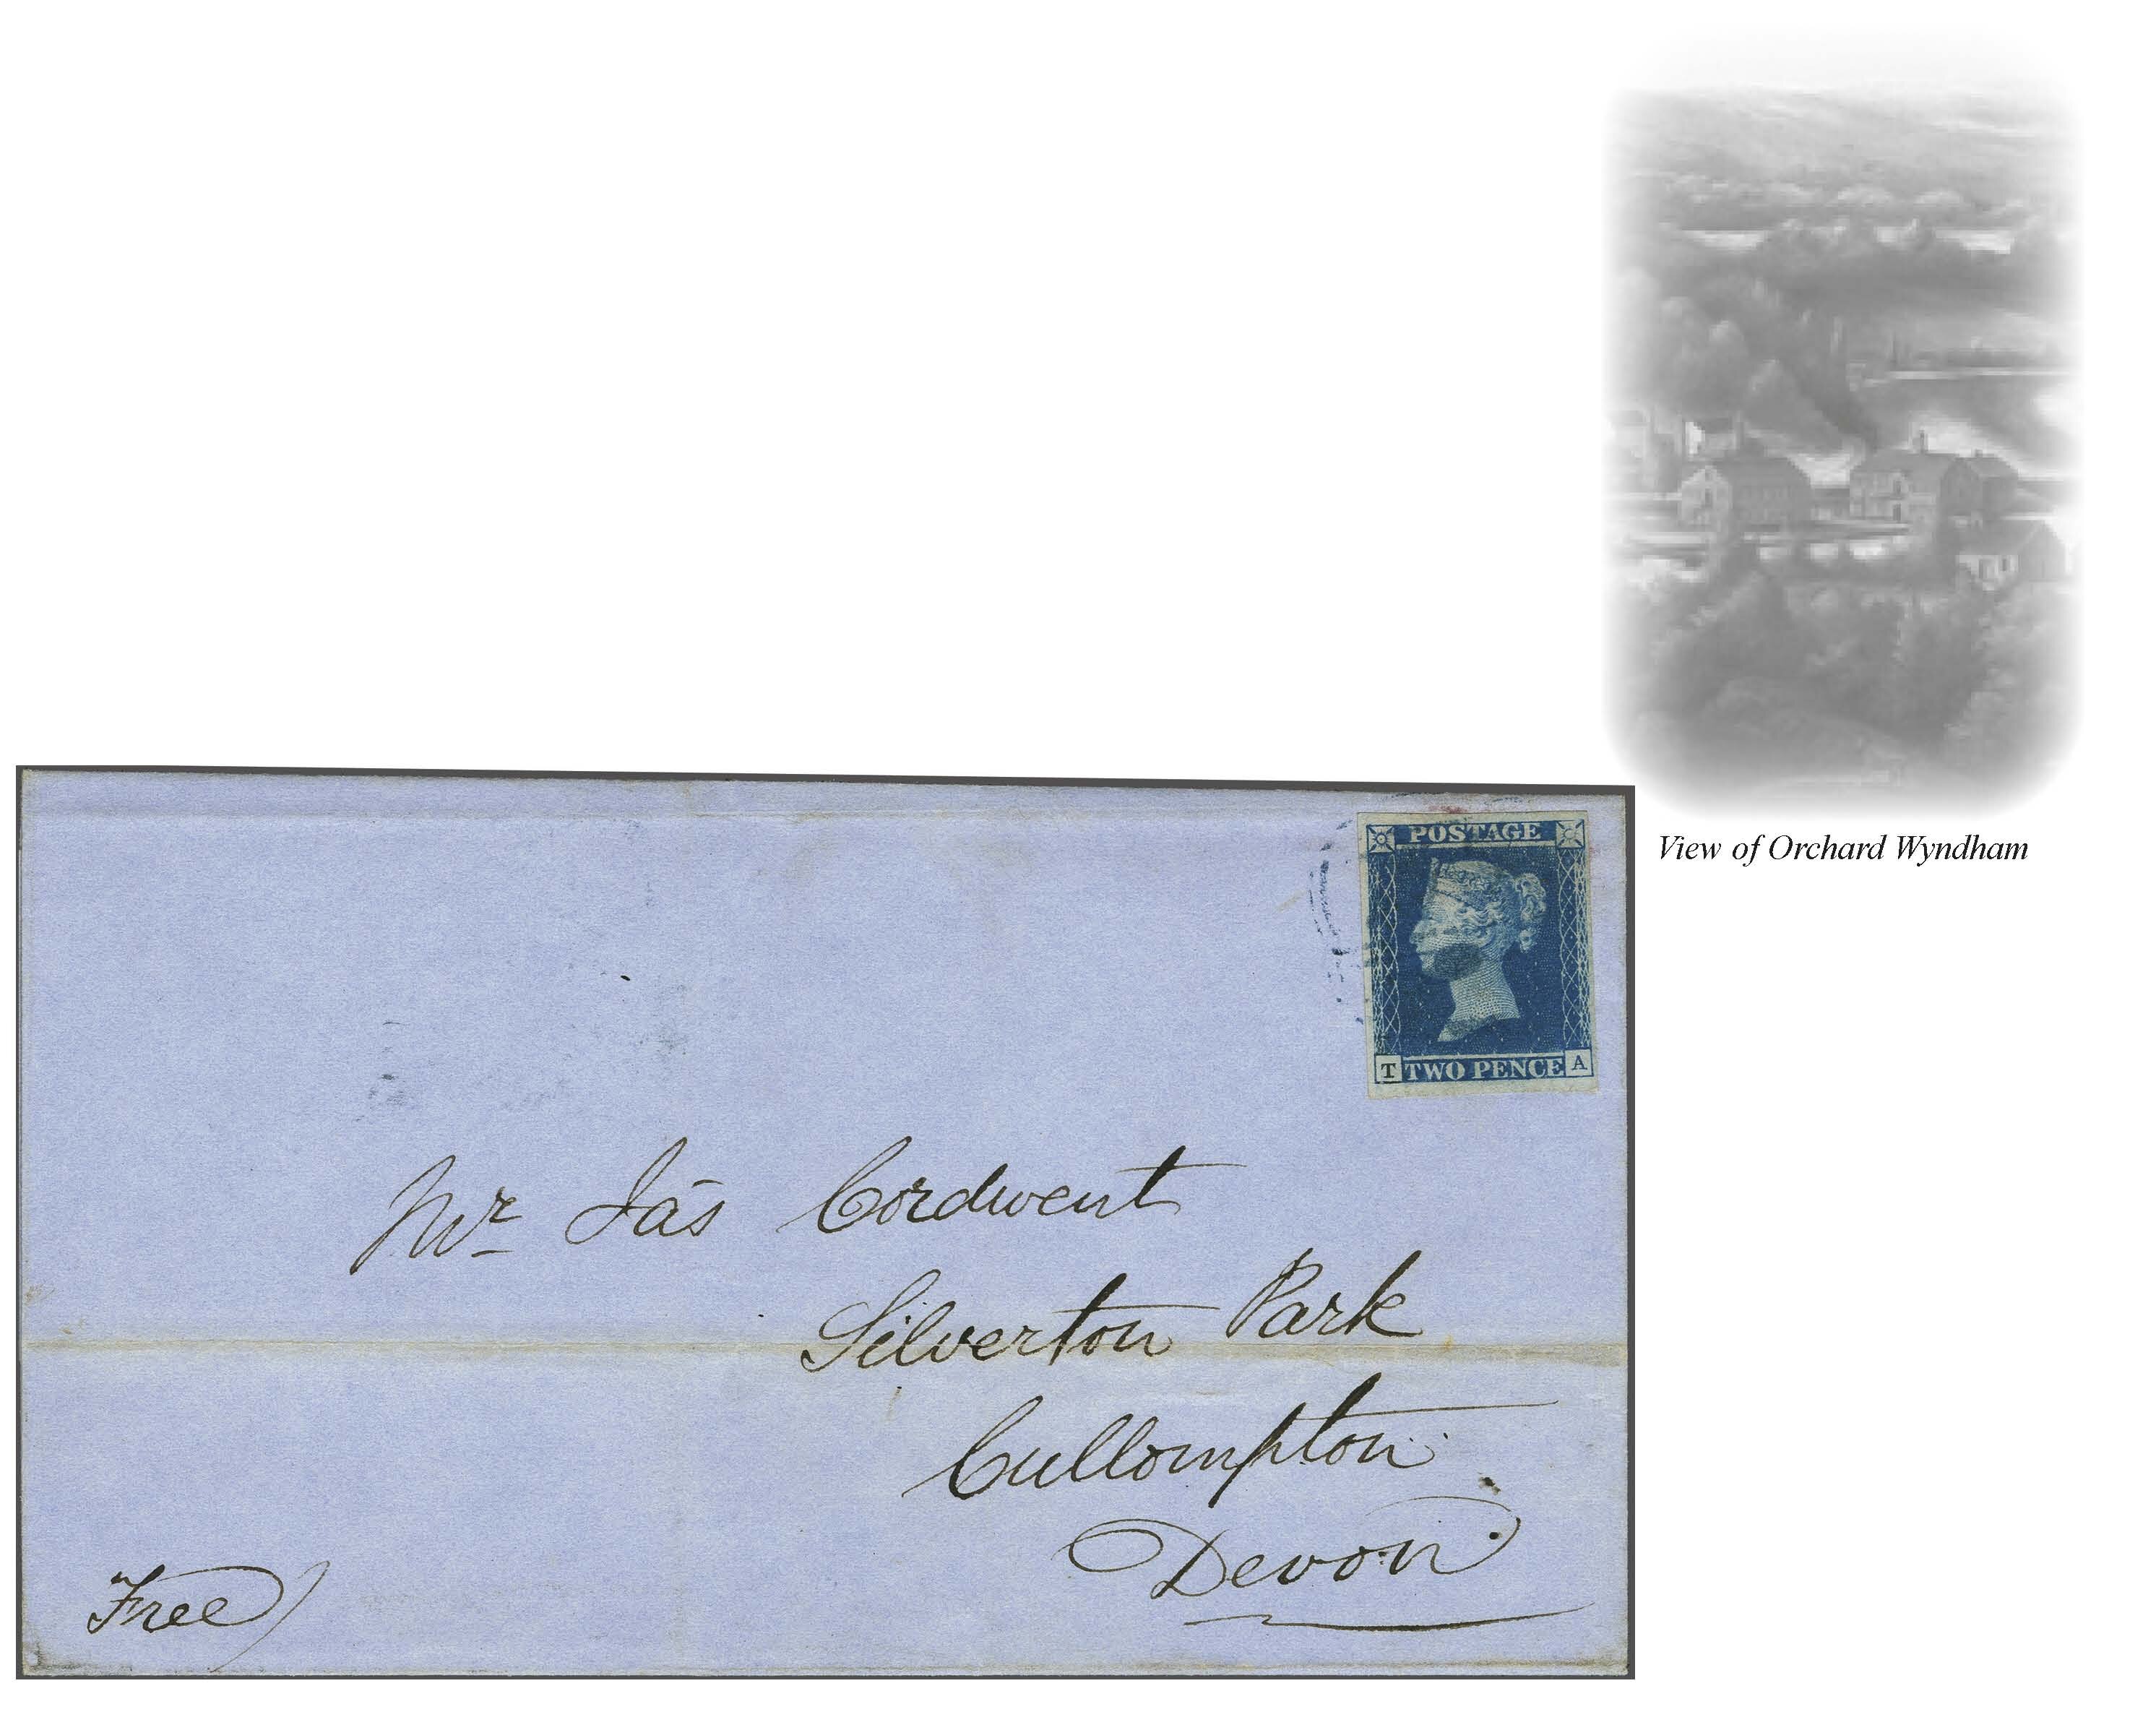 POSTAGE
T TWO PENCE A
View of Orchard Wyndham
Mr Jas Cordwent
Silverton Park
Cullompton
Devon
Free